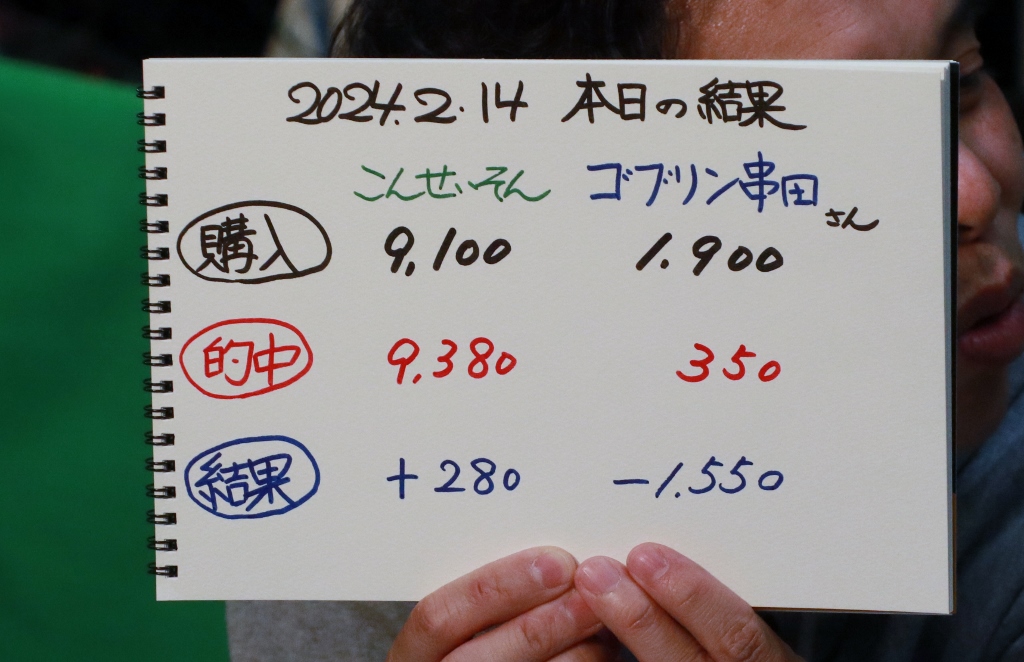 2024.2.14 本日の結果
こんせいそん ゴブリン串田さん
購入 9,100 1.900
的中 9,380 350
結果 +280 -1.550